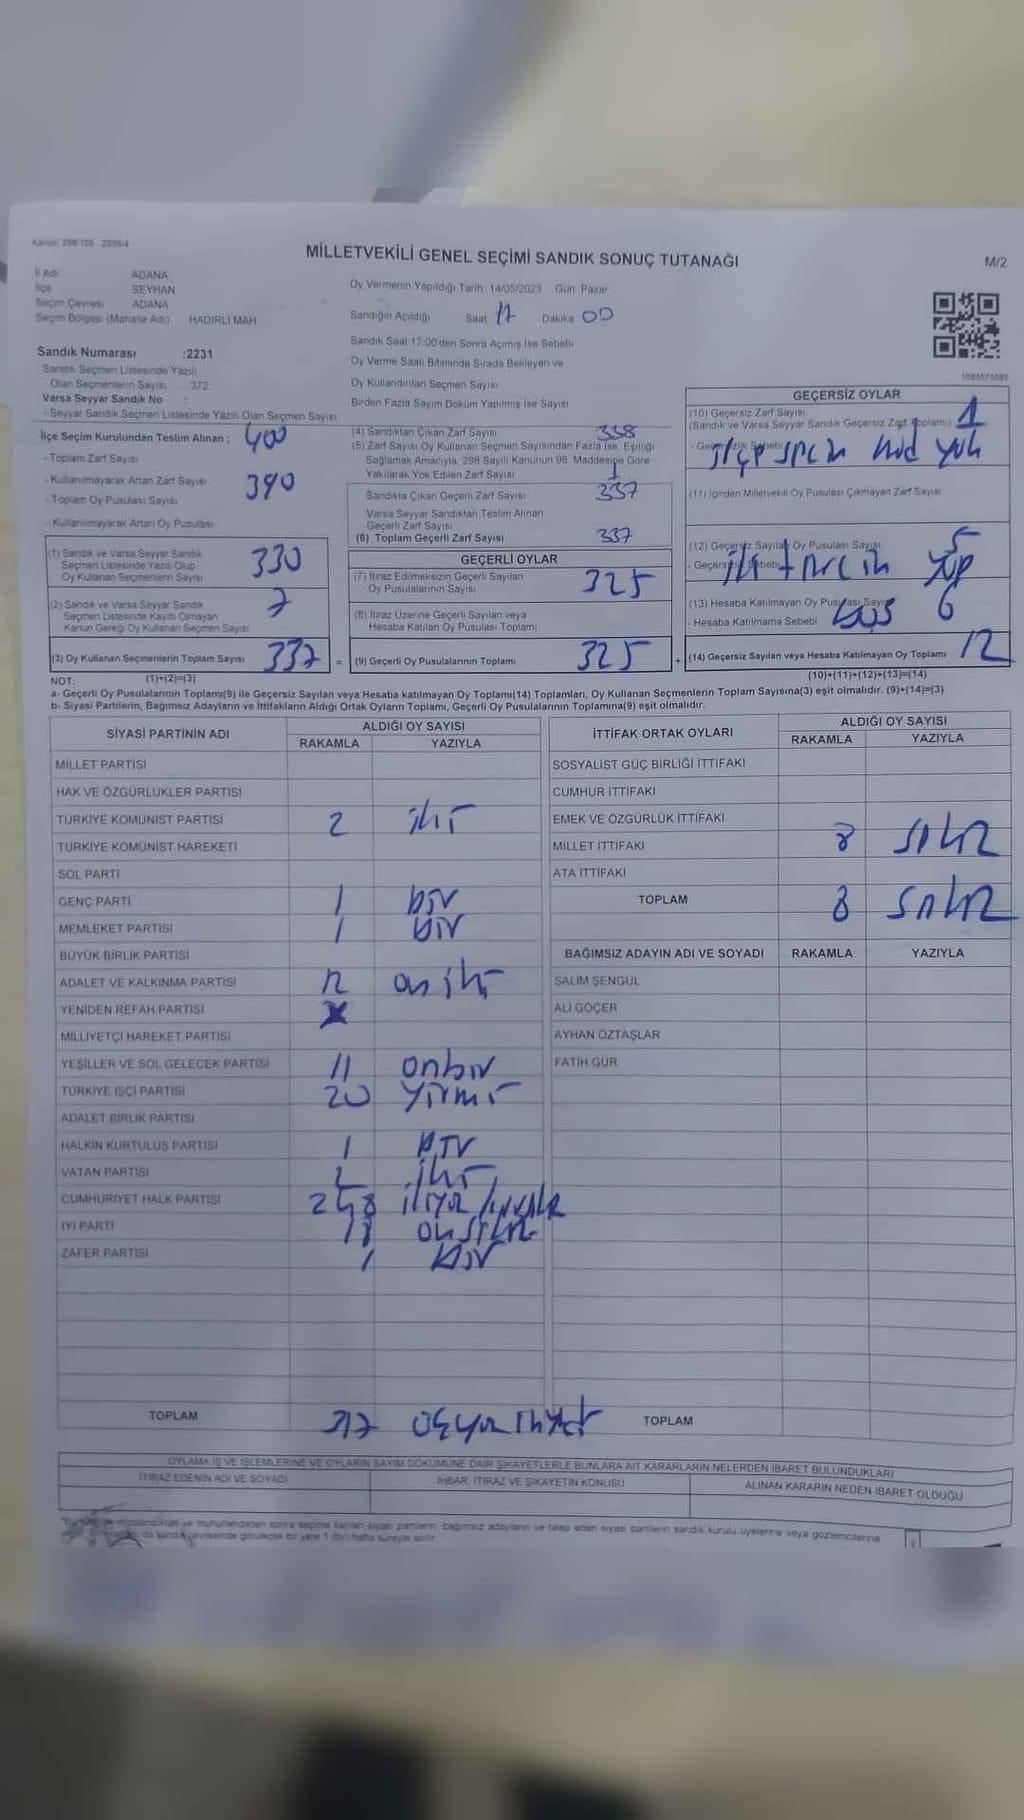 Kanun: 298/105 - 2839/4
MİLLETVEKİLİ GENEL SEÇİMİ SANDIK SONUÇ TUTANAĞI
M/2
İl Adı ADANA
İlçe SEYHAN
Seçim Çevresi ADANA
Seçim Bölgesi (Mahalle Adı) HADIRLI MAH
Sandık Numarası :2231
Sandık Seçmen Listesinde Yazılı
Olan Seçmenlerin Sayısı : 372
Varsa Seyyar Sandık No :
- Seyyar Sandık Seçmen Listesinde Yazılı Olan Seçmen Sayısı
Oy Vermenin Yapıldığı Tarih: 14/05/2023 Gün: Pazar
Sandığın Açıldığı Saat 17 Dakika 00
Sandık Saat 17:00'den Sonra Açımış İse Sebebi
Oy Verme Saati Bitiminde Sırada Bekleyen ve
Oy Kullandırılan Seçmen Sayısı
Birden Fazla Sayım Döküm Yapılmış İse Sayısı
İlçe Seçim Kurulundan Teslim Alınan : 400
- Toplam Zarf Sayısı
- Kullanılmayarak Artan Zarf Sayısı 390
- Toplam Oy Pusulası Sayısı
- Kullanılmayarak Artan Oy Pusulası
(1) Sandık ve Varsa Seyyar Sandık
Seçmen Listesinde Yazılı Olup
Oy Kullanan Seçmenlerin Sayısı 330
(2) Sandık ve Varsa Seyyar Sandık
Seçmen Listesinde Kayıtlı Olmayan
Kanun Gereği Oy Kullanan Seçmen Sayısı 7
(3) Oy Kullanan Seçmenlerin Toplam Sayısı 337 =
(1)+(2)=(3)
(4) Sandıktan Çıkan Zarf Sayısı 338
(5) Zarf Sayısı Oy Kullanan Seçmen Sayısından Fazla İse, Eşitliği
Sağlamak Amacıyla, 298 Sayılı Kanunun 98. Maddesine Göre
Yakılarak Yok Edilen Zarf Sayısı 1
Sandıkta Çıkan Geçerli Zarf Sayısı 337
Varsa Seyyar Sandıktan Teslim Alınan
Geçerli Zarf Sayısı
(6) Toplam Geçerli Zarf Sayısı 337
GEÇERLİ OYLAR
(7) İtiraz Edilmeksizin Geçerli Sayılan
Oy Pusulalarının Sayısı 325
(8) İtiraz Üzerine Geçerli Sayılan veya
Hesaba Katılan Oy Pusulası Toplamı
(9) Geçerli Oy Pusulalarının Toplamı 325 +
1085575585
GEÇERSİZ OYLAR
(10) Geçersiz Zarf Sayısı
(Sandık ve Varsa Seyyar Sandık Geçersiz Zarf Toplamı) 1
- Geçersizlik Sebebi
(11) İçinden Milletvekili Oy Pusulası Çıkmayan Zarf Sayısı
(12) Geçersiz Sayılan Oy Pusulası Sayısı 5
- Geçersizlik Sebebi
(13) Hesaba Katılmayan Oy Pusulası Sayısı 6
- Hesaba Katılmama Sebebi boş
(14) Geçersiz Sayılan veya Hesaba Katılmayan Oy Toplamı 12
(10)+(11)+(12)+(13)=(14)
NOT:
a- Geçerli Oy Pusulalarının Toplamı(9) ile Geçersiz Sayılan veya Hesaba katılmayan Oy Toplamı(14) Toplamları, Oy Kullanan Seçmenlerin Toplam Sayısına(3) eşit olmalıdır. (9)+(14)=(3)
b- Siyasi Partilerin, Bağımsız Adayların ve İttifakların Aldığı Ortak Oyların Toplamı, Geçerli Oy Pusulalarının Toplamına(9) eşit olmalıdır.
SİYASİ PARTİNİN ADI ALDIĞI OY SAYISI
RAKAMLA YAZIYLA
MİLLET PARTİSİ
HAK VE ÖZGÜRLÜKLER PARTİSİ
TÜRKİYE KOMÜNİST PARTİSİ 2 iki
TÜRKİYE KOMÜNİST HAREKETİ
SOL PARTİ
GENÇ PARTİ 1 bir
MEMLEKET PARTİSİ 1 bir
BÜYÜK BİRLİK PARTİSİ
ADALET VE KALKINMA PARTİSİ 12 on iki
YENİDEN REFAH PARTİSİ
MİLLİYETÇİ HAREKET PARTİSİ
YEŞİLLER VE SOL GELECEK PARTİSİ 11 onbir
TÜRKİYE İŞÇİ PARTİSİ 20 yirmi
ADALET BİRLİK PARTİSİ
HALKIN KURTULUŞ PARTİSİ 1 bir
VATAN PARTİSİ 2 iki
CUMHURİYET HALK PARTİSİ 248
İYİ PARTİ 18 onsekiz
ZAFER PARTİSİ 1 bir
TOPLAM 317
İTTİFAK ORTAK OYLARI ALDIĞI OY SAYISI
RAKAMLA YAZIYLA
SOSYALİST GÜÇ BİRLİĞİ İTTİFAKI
CUMHUR İTTİFAKI
EMEK VE ÖZGÜRLÜK İTTİFAKI
MİLLET İTTİFAKI 8 sekiz
ATA İTTİFAKI
TOPLAM 8 sekiz
BAĞIMSIZ ADAYIN ADI VE SOYADI RAKAMLA YAZIYLA
SALİM ŞENGÜL
ALİ GÖÇER
AYHAN ÖZTAŞLAR
FATİH GÜR
TOPLAM
OYLAMA İŞ VE İŞLEMLERİNE VE OYLARIN SAYIM DÖKÜMÜNE DAİR ŞİKAYETLERLE BUNLARA AİT KARARLARIN NELERDEN İBARET BULUNDUKLARI
İTİRAZ EDENİN ADI VE SOYADI İHBAR, İTİRAZ VE ŞİKAYETİN KONUSU ALINAN KARARIN NEDEN İBARET OLDUĞU
imzalandıktan ve mühürlendikten sonra seçime katılan siyasi partilerin, bağımsız adayların ve talep eden siyasi partilerin sandık kurulu üyelerine veya gözlemcilerine
da sandık çevresinde görülecek bir yere 1 (bir) hafta süreyle asılır.